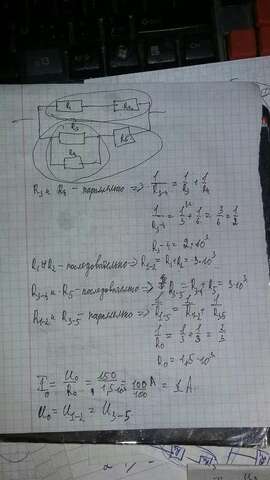 R₁ R₂
R₃
R₅
R₄
R₃ и R₄ – параллельно => 1/R₃₋₄ = 1/R₃ + 1/R₄
1/R₃₋₄ = 1/3 + 1/6 = 3/6 = 1/2
R₃₋₄ = 2·10³
R₁ и R₂ – последовательно => R₁₋₂ = R₁+R₂ = 3·10³
R₃₋₄ и R₅ – последовательно => R₃₋₅ = R₃₋₄ + R₅ = 3·10³
R₁₋₂ и R₃₋₅ – параллельно => 1/R₁₋₅ = 1/R₁₋₂ + 1/R₃₋₅
1/R₀ = 1/3 + 1/3 = 2/3
R₀ = 1,5·10³
I₀ = U₀/R₀ = 150/1,5·10³ = 100/100 А = 1 А
U₀ = U₁₋₂ = U₃₋₅